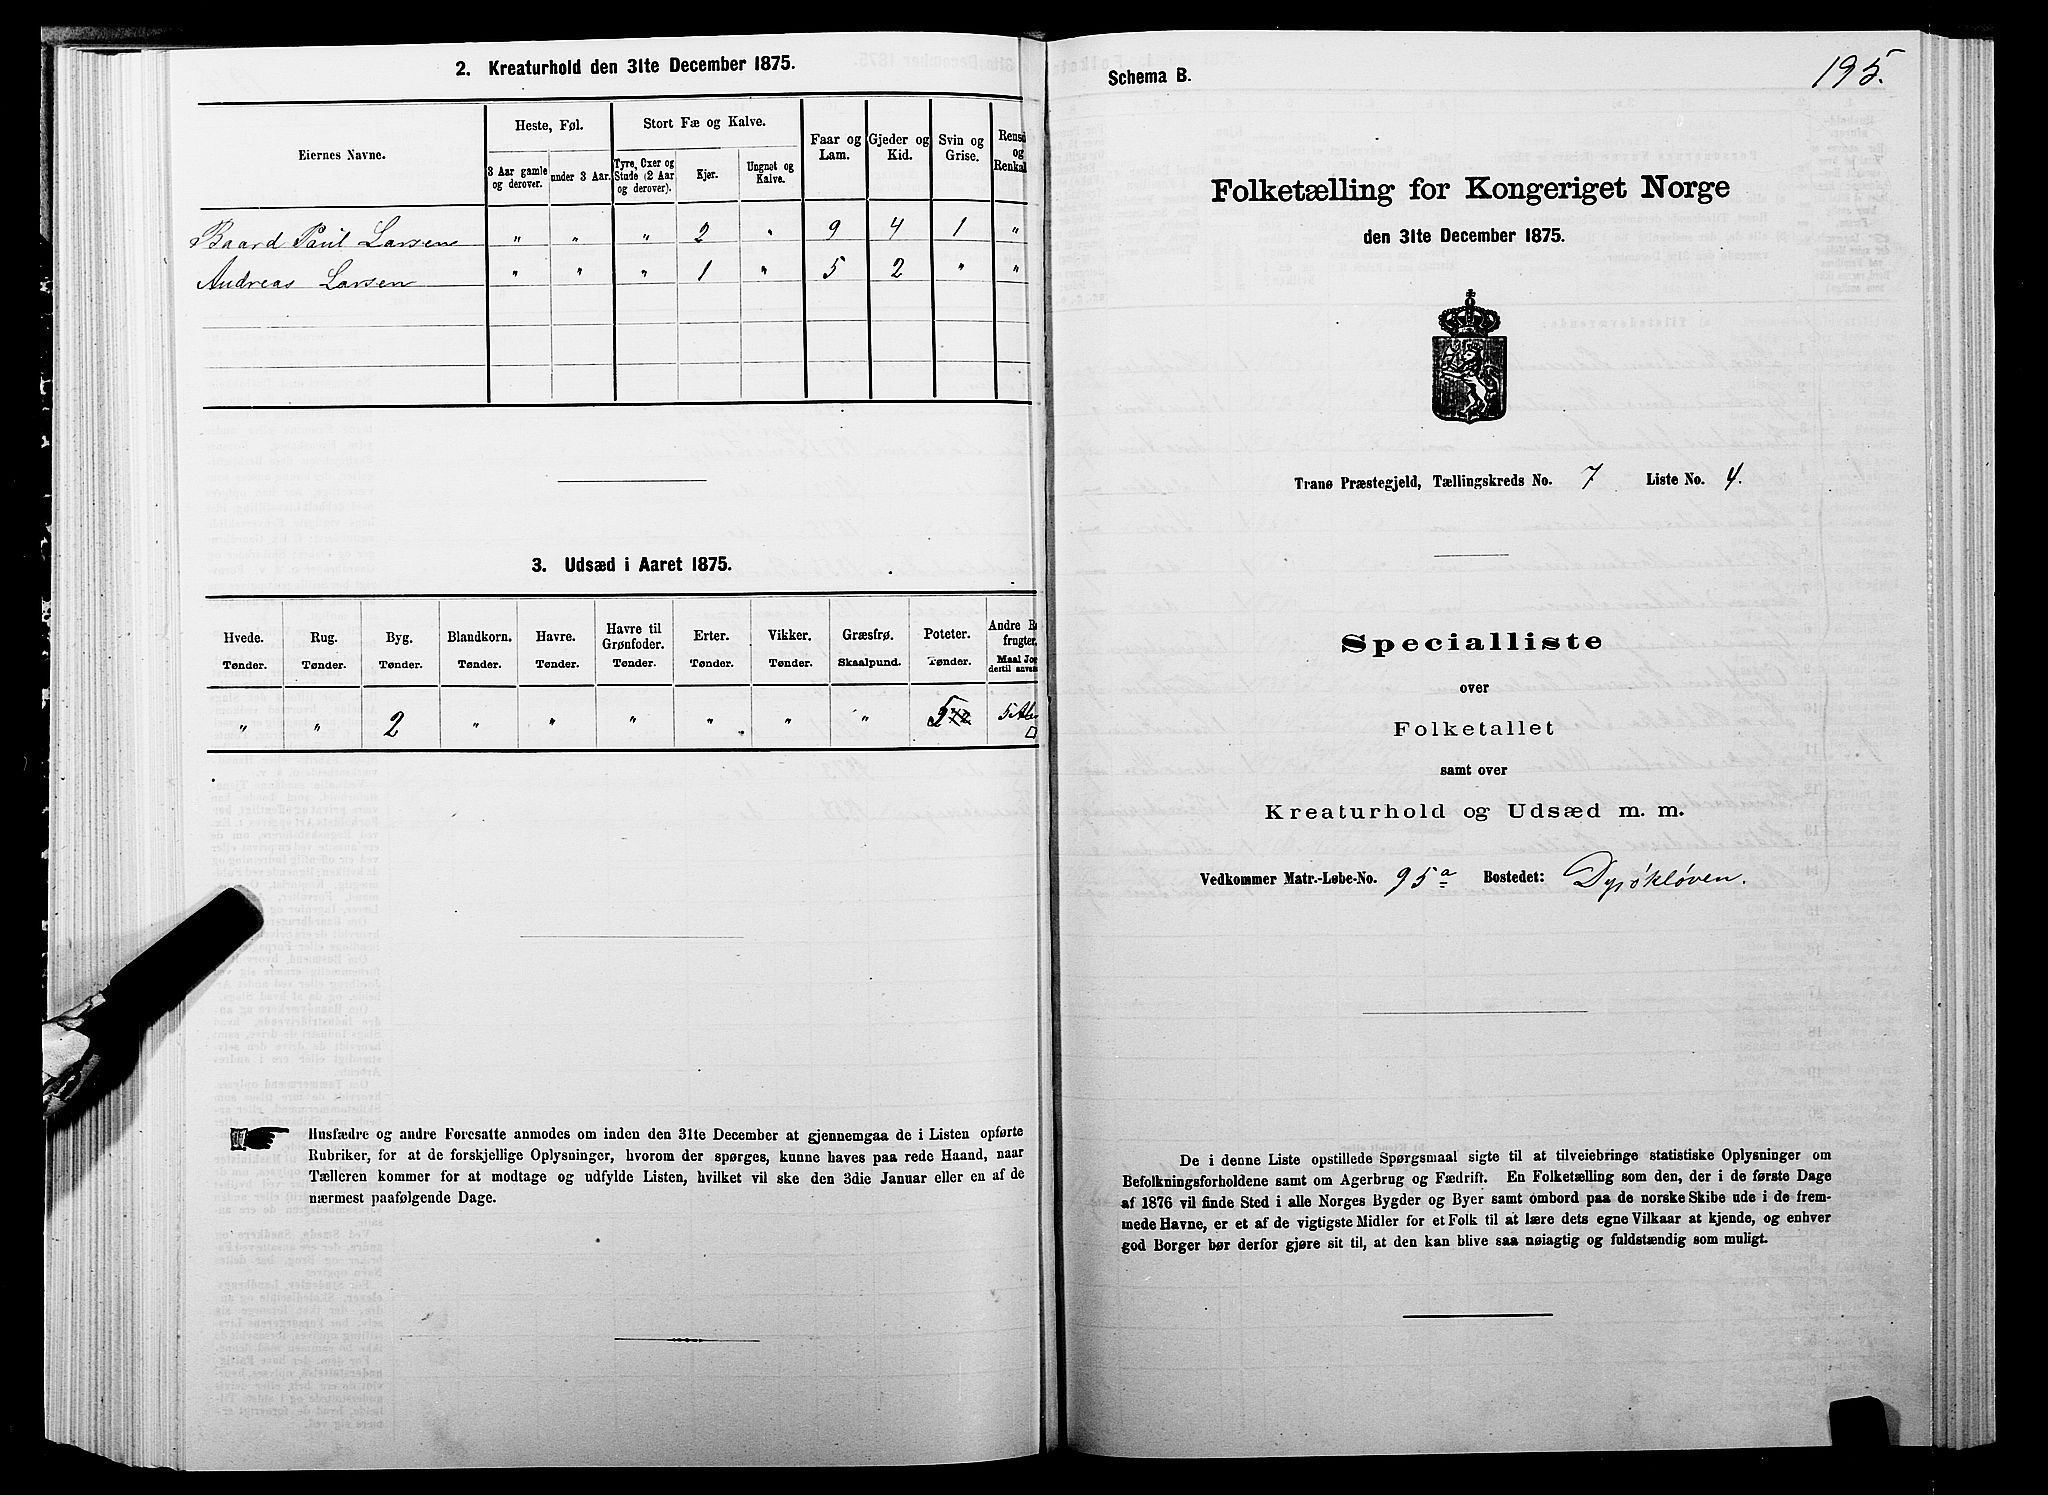 2. Kreaturhold den 31te December 1875.
Eiernes Navne.
Heste, Føl.
Stort Fæ og Kalve.
Faar og Lam.
Gjeder og Kid.
Svin og Grise.
og
3 Aar gamle og derover.
under 3 Aar.
Tyre, Oxer og Stude (2 Aar og derover).
Kjør.
Ungnøt og Kalve.
Baard Paul Larsen " " " 2 " 9 4 1 "
Andreas Larsen " " " 1 " 5 2 " "
3. Udsæd i Aaret 1875.
Hvede. Rug. Byg. Blandkorn. Havre. Havre til Grønfoder. Erter. Vikker. Græsfrø. Poteter. Andre
frugter.
Tønder. Tønder. Tønder. Tønder. Tønder. Tønder. Tønder. Tønder. Skaalpund. Tønder. Maal
dertil
" " 2 " " " " " " 5 5
Husfædre og andre Foresatte anmodes om inden den 31te December at gjennemgaa de i Listen opførte
Rubriker, for at de forskjellige Oplysninger, hvorom der spørges, kunne haves paa rede Haand, naar
Tælleren kommer for at modtage og udfylde Listen, hvilket vil ske den 3die Januar eller en af de
nærmest paafølgende Dage.
195.
Schema B.
Folketælling for Kongeriget Norge
den 31te December 1875.
Tranø Præstegjeld, Tællingskreds No. 7 Liste No. 4.
Specialliste
over
Folketallet
samt over
Kreaturhold og Udsæd m. m.
Vedkommer Matr.-Løbe-No. 95a Bostedet: Dyrøkløven.
De i denne Liste opstillede Spørgsmaal sigte til at tilveiebringe statistiske Oplysninger om
Befolkningsforholdene samt om Agerbrug og Fædrift. En Folketælling som den, der i de første Dage
af 1876 vil finde Sted i alle Norges Bygder og Byer samt ombord paa de norske Skibe ude i de frem-
mede Havne, er et af de vigtigste Midler for et Folk til at lære dets egne Vilkaar at kjende, og enhver
god Borger bør derfor gjøre sit til, at den kan blive saa nøiagtig og fuldstændig som muligt.